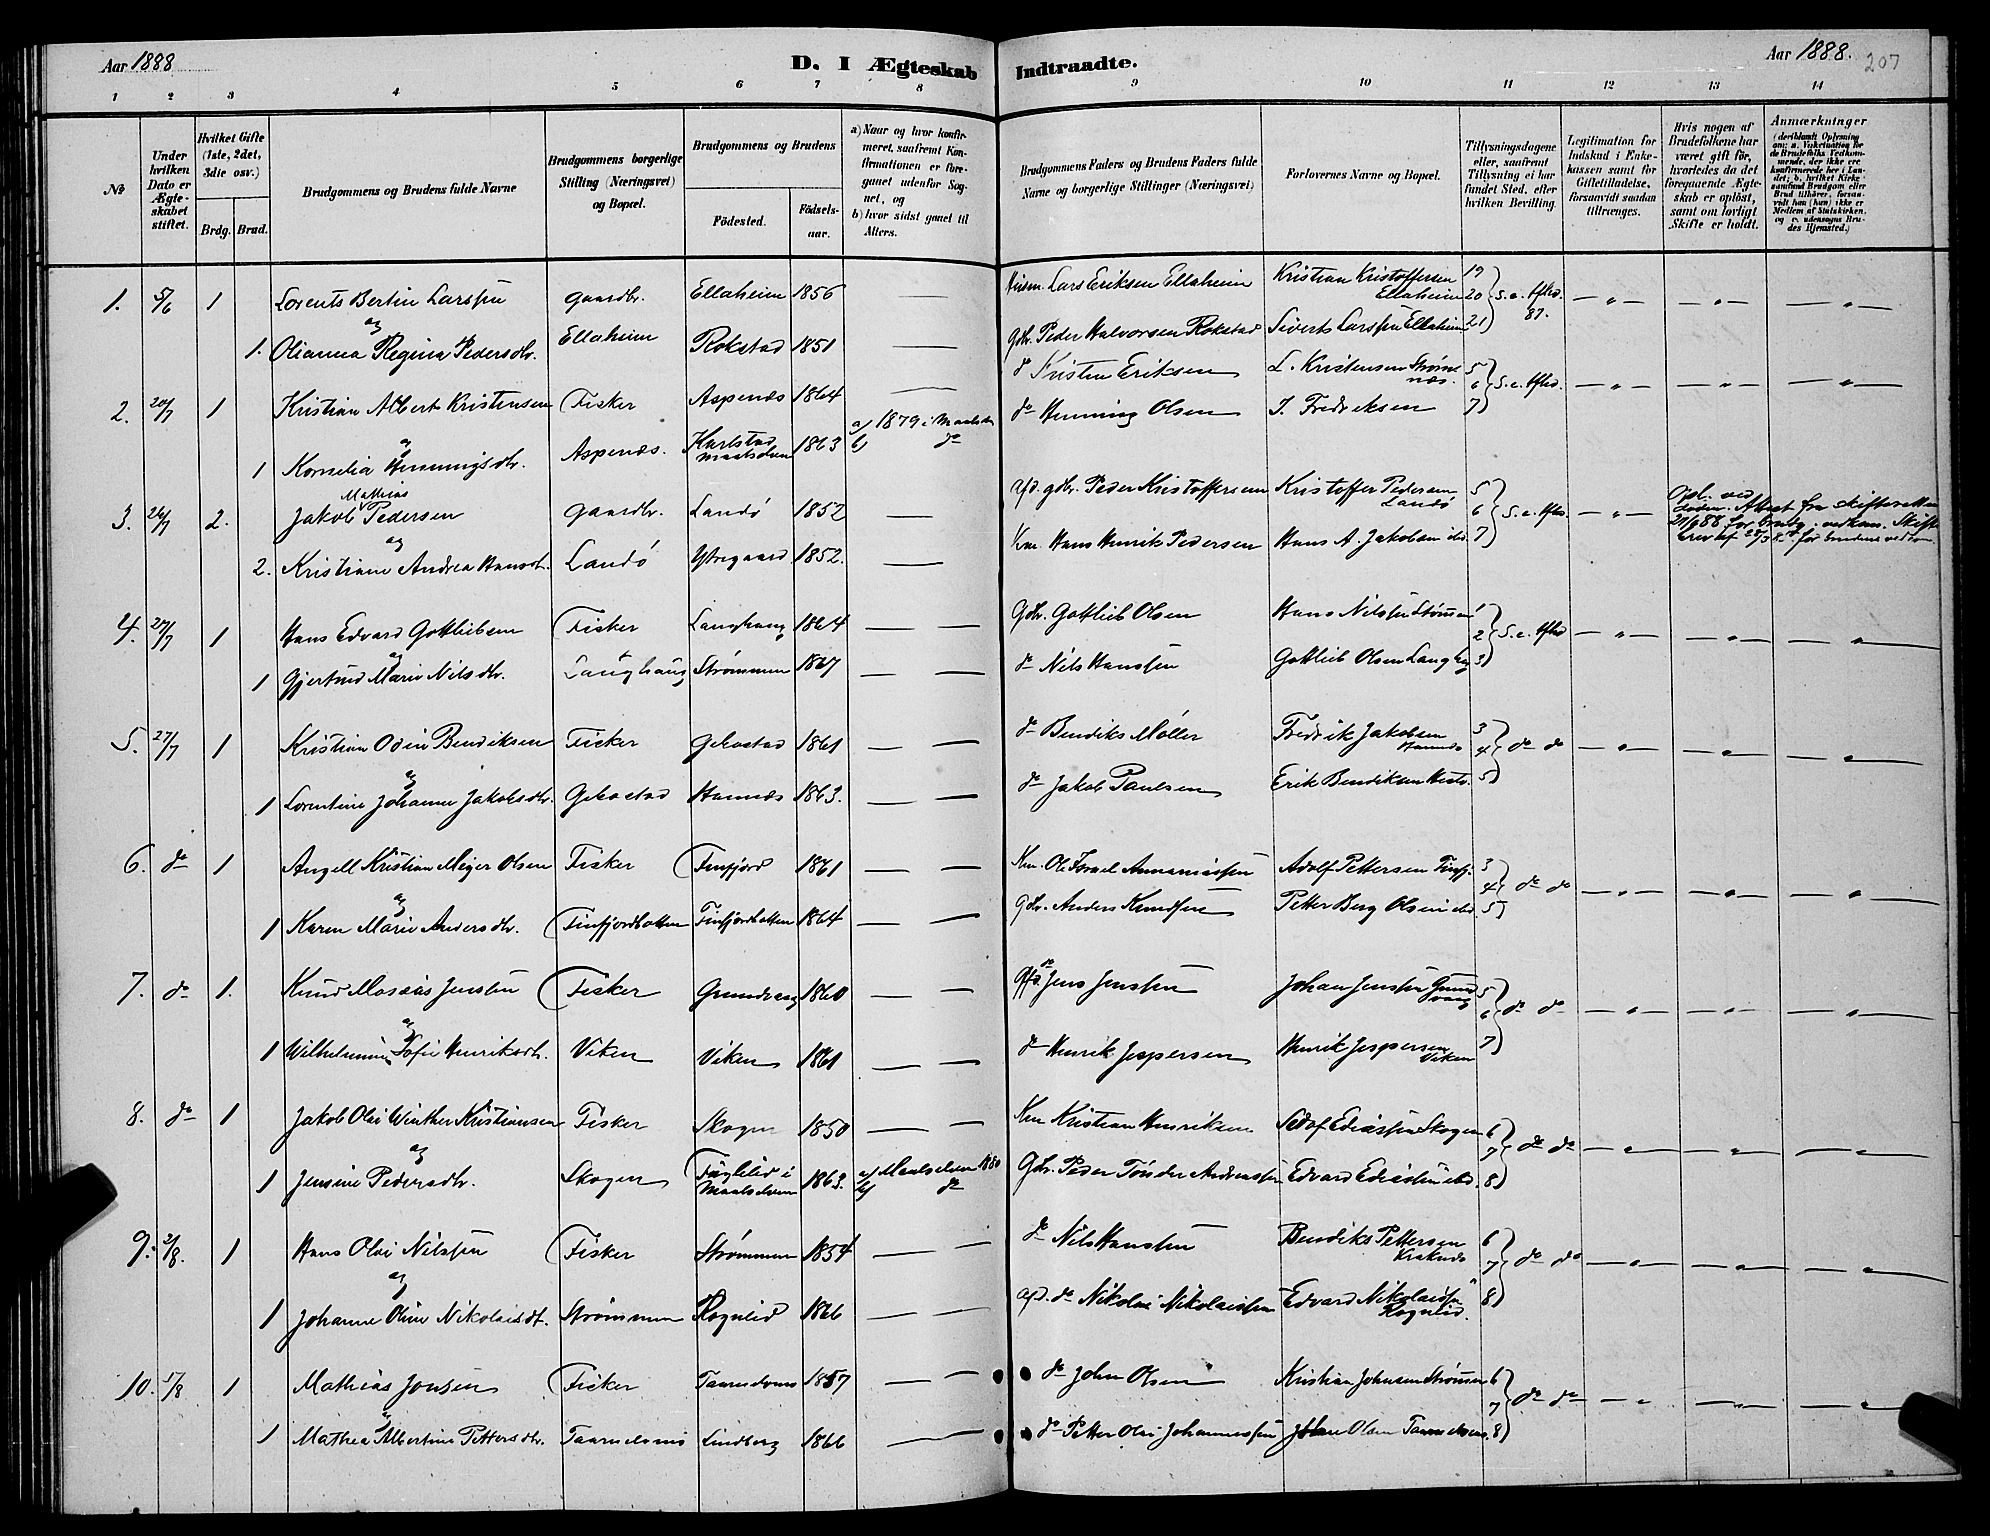 Aar 1888
D. I Ægteskab Indtraadte.
Aar 1888.
207
1 2 3 4 5 6 7 8 9 10 11 12 13 14
No
Under hvilken Dato er Ægteskabet stiftet.
Hvilket Gifte (1ste, 2det, 3die osv.)
Brdg. Brud.
Brudgommens og Brudens fulde Navne
Brudgommens borgerlige Stilling (Næringsvei) og Bopæl.
Brudgommens og Brudens
Födested.
Födselsaar.
a) Naar og hvor konfirmeret, saafremt Konfirmationen er foregaaet udenfor Sognet, og
b) hvor sidst gaaet til Alters.
Brudgommens Faders og Brudens Faders fulde Navne og borgerlige Stillinger (Næringsvei)
Forlovernes Navne og Bopæl.
Tillysningsdagene eller, saafremt Tillysning ei har fundet Sted, efter hvilken Bevilling.
Legitimation for Indskud i Enkekassen samt for Giftetilladelse, forsaavidt saadan tiltrænges.
Hvis nogen af Brudefolkene har været gift för, hvorledes da det foregaaende Ægteskab er oplöst, samt om lovligt Skifte er holdt.
Anmærkninger
1. 5/6 1 Lorents Bertin Larssen Gaardbr. Ellaheim 1856 Husm. Lars Eriksen Ellaheim Kristian Kristoffersen Ellaheim 19 20 21 S. e. Hfkd. 87.
og
1. Olianna Regina Pedersdtr. Ellaheim Rokstad 1851 Gdbr. Peder Halvorsen Rokstad Sivert Larssen Ellaheim
2. 20/7 1 Kristian Albert Kristensen Fisker Aspenæs 1864 do Kristen Eriksen L. Kristensen Strømenæs. 5 6 7 S. e. Hfkd.
og
1 Kornelia Henningsdtr. Aspenæs. Karlstad Maalselven 1863 a) 1879 i Maalselv b) do do Henning Olsen I. Fredriksen
3. 26/7 2. Jakob Mathias Pedersen Gaardbr. Landø 1852 Gdbr. Peder Kristoffersen Kristoffer Pedersen Landø 5 6 7 S. e. Hfkd.
og
2. Kristiane Andrea Hansdt. Landø Ytregaard 1852. Km. Hans Henrik Pedersen Hans A. Jakobsen ibd.
4. 27/7 1 Hans Edvard Gottliebsen Fisker Langhaug 1864 Gdbr. Gottlieb Olsen Hans Nilssen Strømen 1 2 3 S. e. Hfkd
og
1 Gjertrud Marie Nilsdtr. Langhaug Strømmen 1867 do Nils Hanssen Gottlieb Olsen Langhg
5. 27/7 1 Kristian Odin Bendiksen Fisker Gebostad 1861 do Bendiks Møller Fredrik Jakobsen 3 4 5 do do
og
1 Lorentine Johanne Jakobsdtr. Gebostad Hannæs 1863. do Jakob Paulsen Erik Bendiksen
6. do 1 Angell Kristian Meyer Olsen Fisker Finfjord 1861 Km Ole Israel Annaniassen Adolf Pettersen Finfj. 3 4 5 do do
og
1 Karen Marie Andersdtr. Finfjordbotten Finfjordbotten 1864 Gdbr. Anders Knudsen Petter Berg Olsen ibd.
7. do 1. Knud Mosæus Jenssen Fisker Grundvaag 1860 do Jens Jenssen Johan Jenssen Grundvaag 5 6 7 do do
og
1 Wilhelmine Sofie Henriksdt. Viken Viken 1861 do Henrik Jespersen Henrik Jespersen Viken
8. do 1 Jakob Olai Winther Kristiansen Fisker Skogen 1850 Km Kristian Henriksen Adolf Ediassen Skogen 6 7 8 do do
og
1 Jensine Pedersdtr. Skogen Fuglelid i Maalselven 1863. a) Maalselven 1880 b) do Gdbr. Peder Tønder Andreassen Edvard Ediassen ibd.
9. 2/8. 1 Hans Olai Nilssen Fisker Strømmen 1854 do Nils Hanssen Bendiks Pettersen Kraknæs 6 7 8 do do
og
1 Johanne Oline Nikolaisdt. Strømmen Rognlid 1866 do Nikolai Nikolaissen Edvard Nikolaissen Rognlid.
10. 1/8 1 Mathias Jonsen Fisker 1857 do John Olsen Kristian Johnsen Strømen 6 7 8 do do
og
1 Mathea Albertine Pettersdtr. Lindberg 1866 do Petter Olai Johannessen Johan Olsen